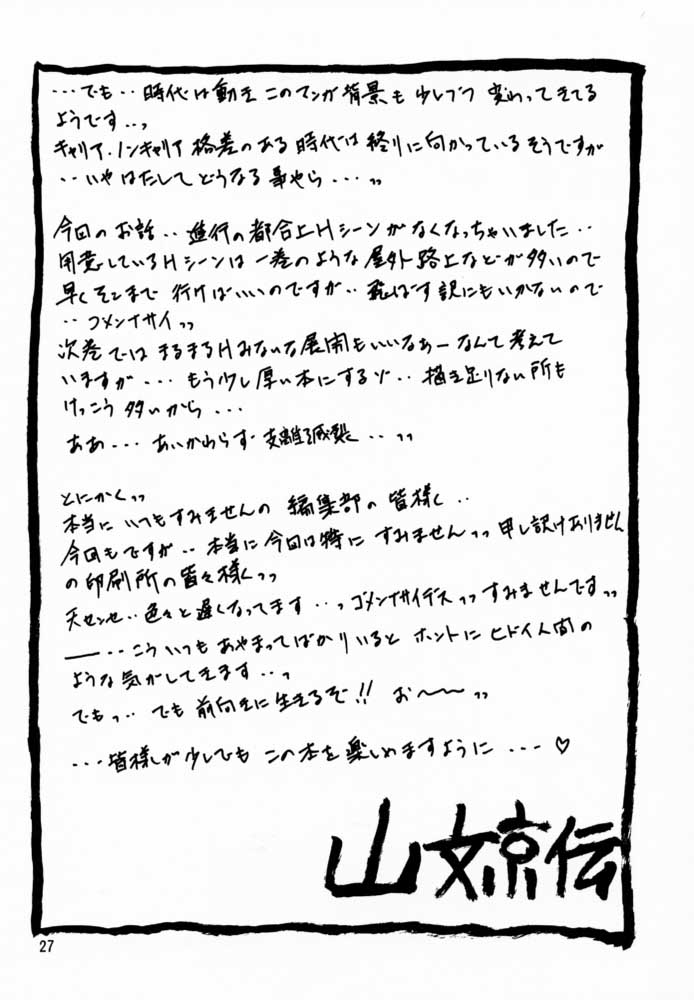 ・・・でも・・時代は動き このマンガ背景も少しづつ 変わってきてる
ようです・・っ
キャリア.ノンキャリア 格差のある時代は終りに向かっているそうですが
・・いや はたして どうなる事やら・・・っっ
今回の お話・・進行の都合上Hシーンがなくなっちゃいました・・
用意しているHシーンは 一巻のような 屋外路上などが多いので
早くそこまで 行けばいいのですが・・飛ばす訳にもいかないので
・・ゴメンナサイっっ
次巻では まるまるHみたいな展開もいいなぁーなんて考えて
いますが・・・もう少し厚い本にするゾ・・描き足りない所も
けっこう 多いから・・・
ああ・・・あいかわらず 支離滅裂・・っっ
とにかくっっ
本当に いつもすみませんの 編集部の皆様く・・
今回もですが・・本当に今回は特に すみませんっっ申し訳けありません
の印刷所の皆々様くっっ
天センセ・・色々と遅くなってます・・っゴメンナサイデスっっすみませんですっっ
――・・こういつも あやまってばかりいると ホントに ヒドイ人間の
ような気がしてきます・・っ
でもっ・・でも 前向きに生きるぞ!! お〜〜っっ
・・・皆様が少しでも この本を楽しめますように・・・♡
山文京伝
27